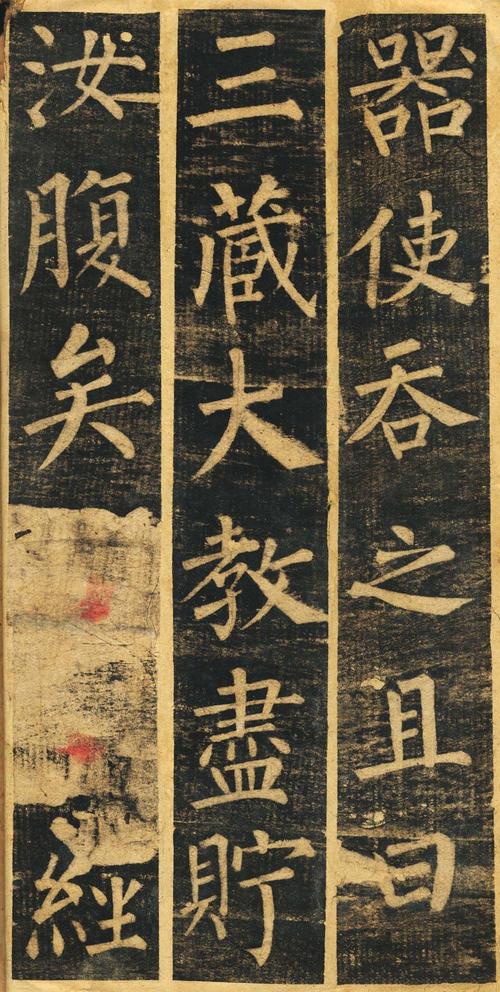 器使吞之且曰
三藏大教盡貯
汝腹矣
經